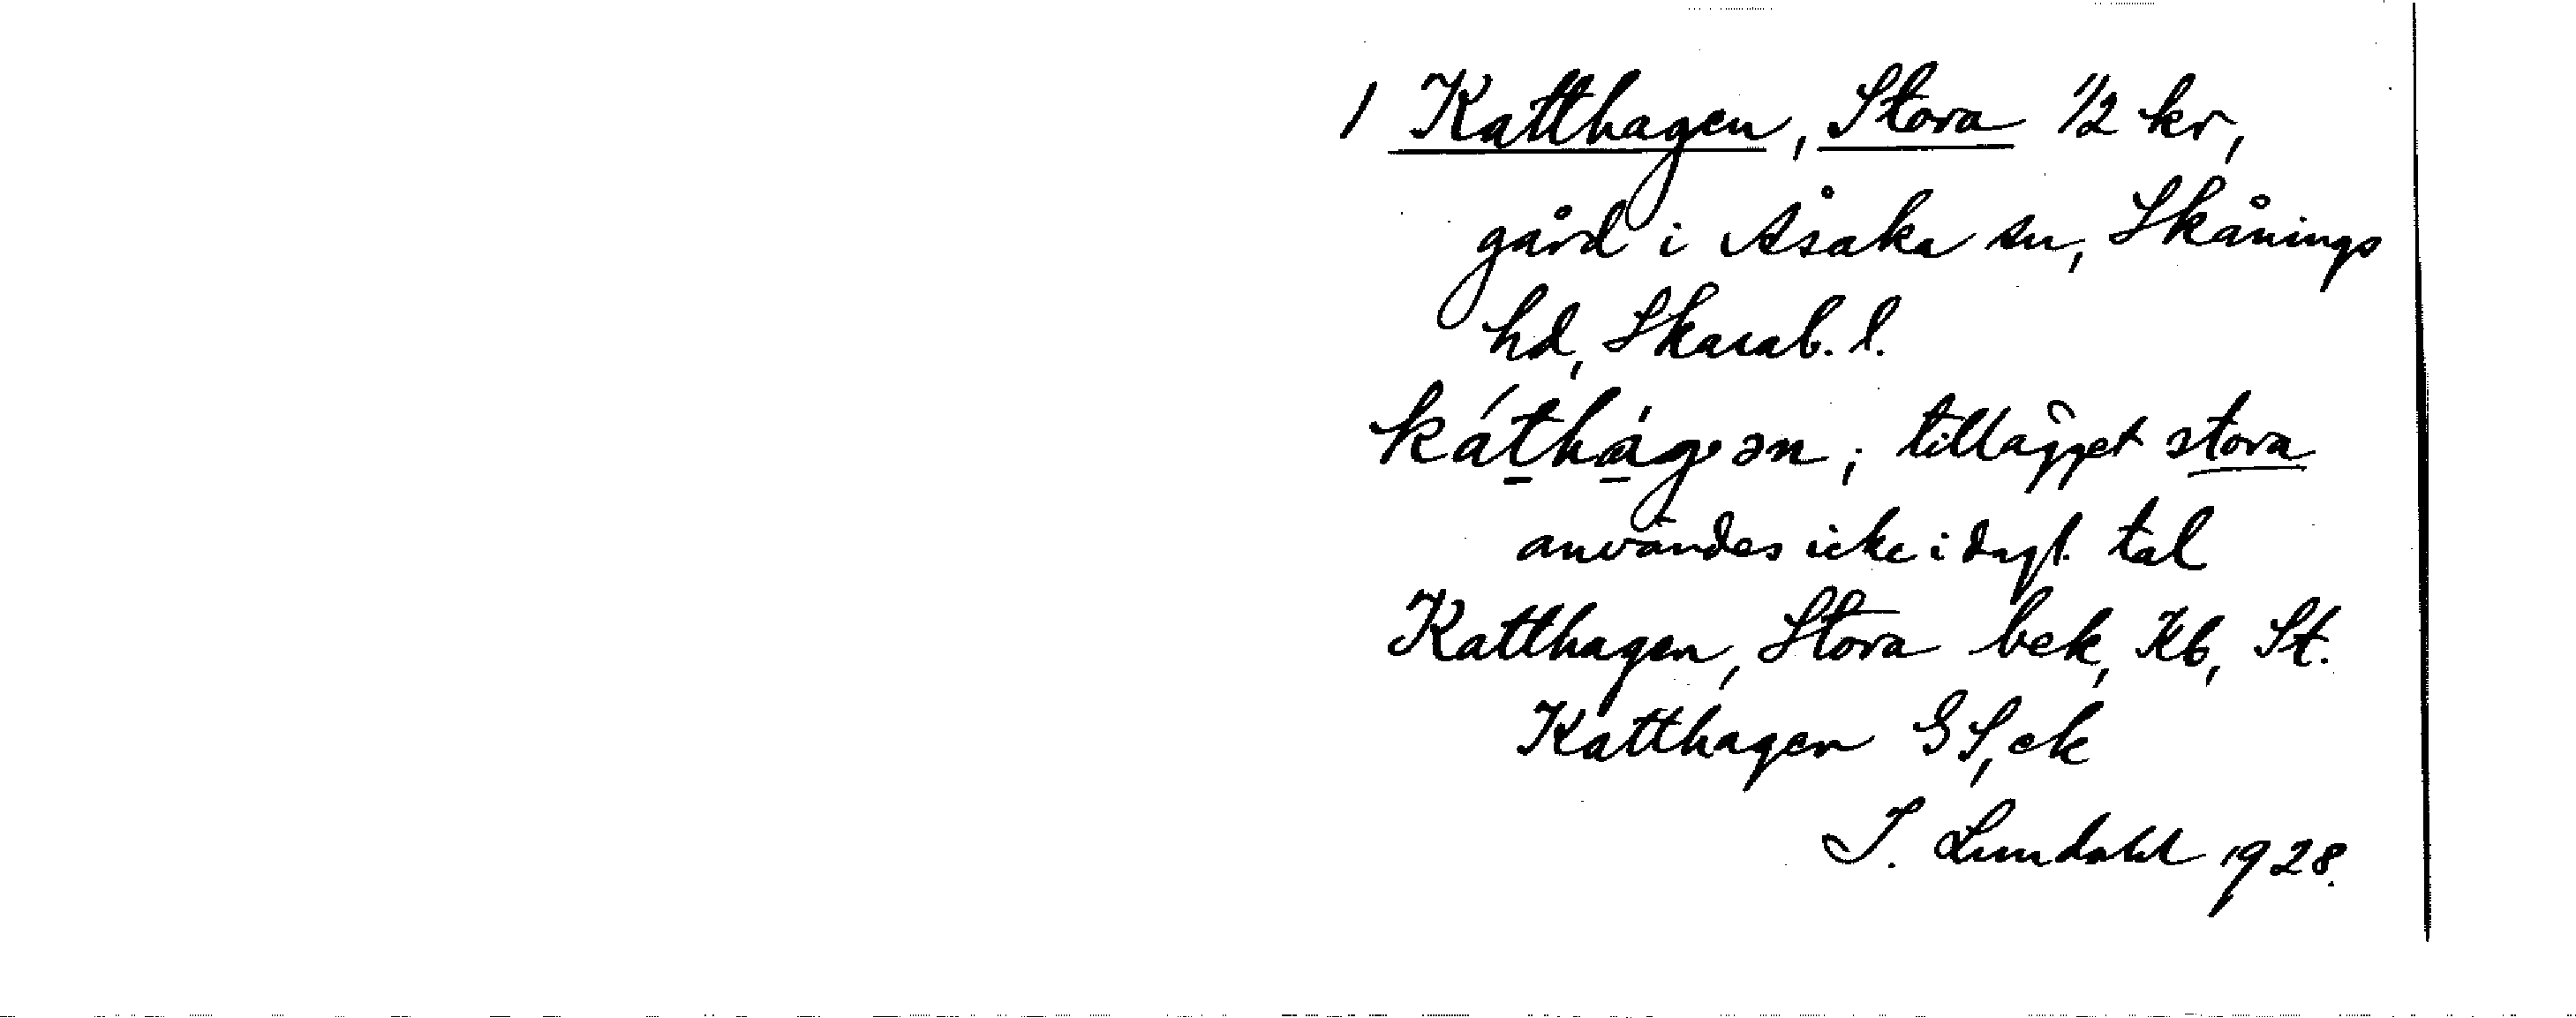 1 Katthagen, Stora 1/2 kr,
gård i Åsaka sn, Skånings
hd, Skarab. l.
káthágən; tillägget stora
användes icke i dagl. tal
Katthagen, Stora bek, Kb, St.
Katthagen GS, ek
I. Lundahl 1928.